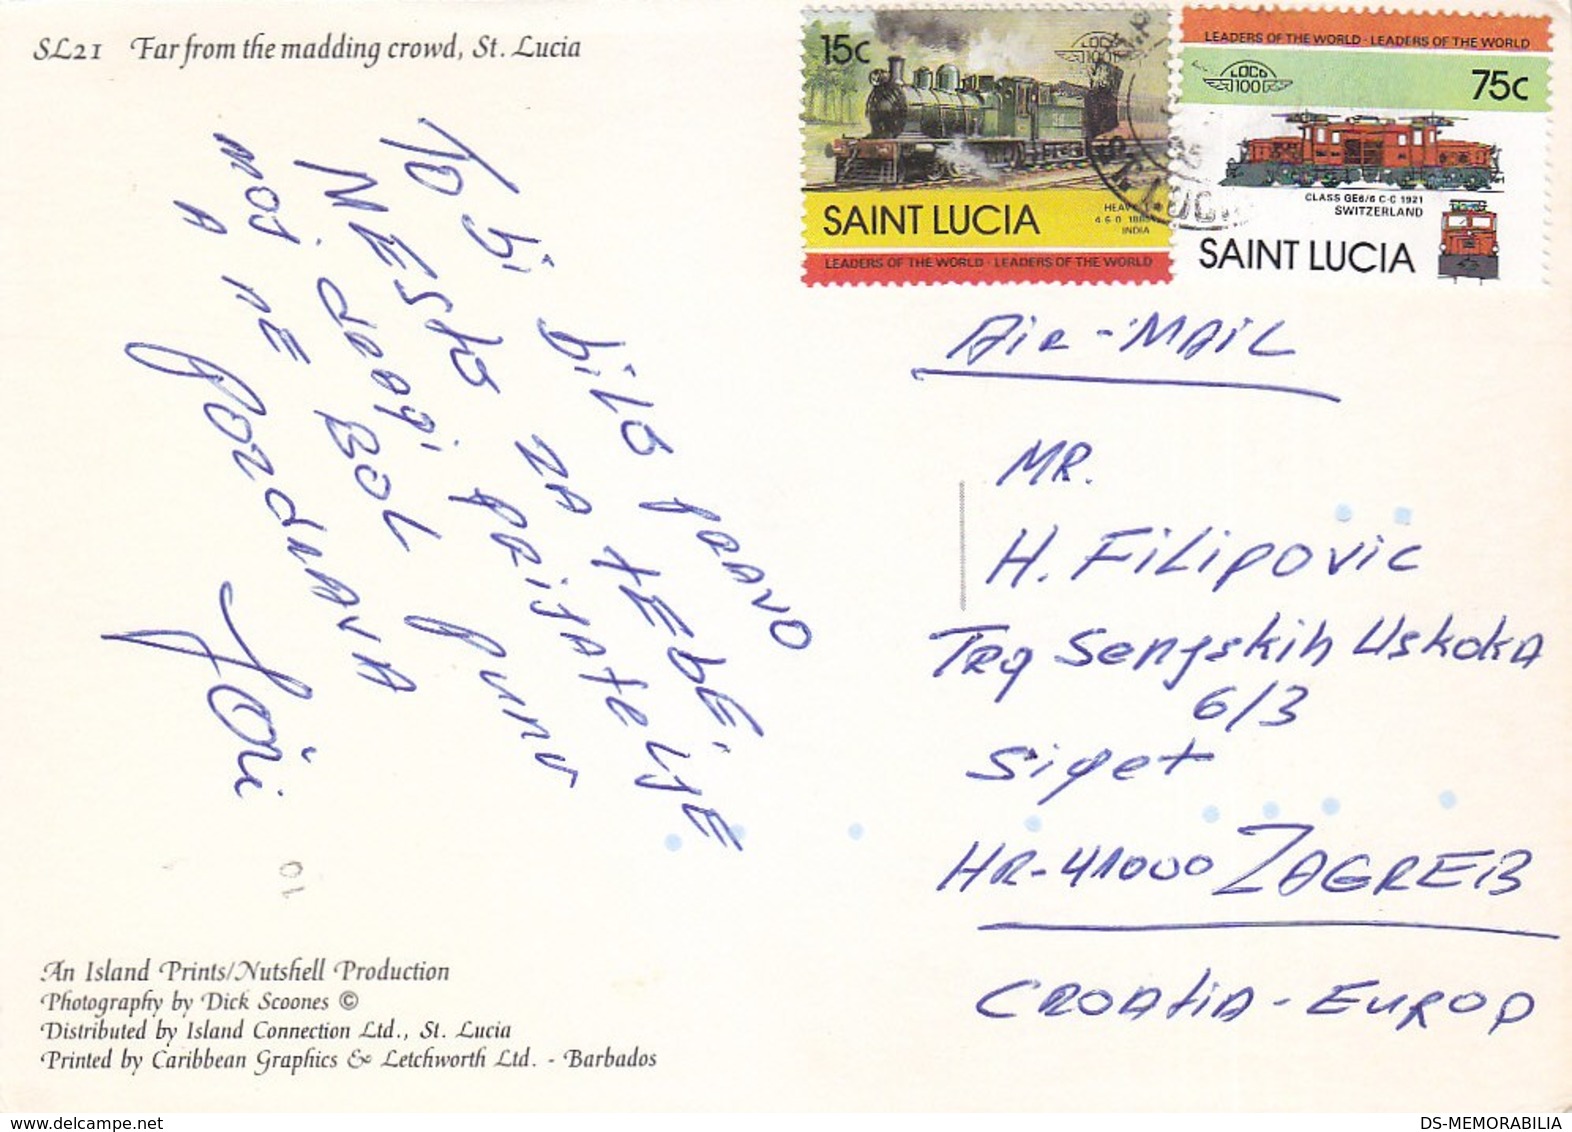 SL21 Far from the madding crowd, St. Lucia
TO bi bilo pravo
MESTO ZA TEBE,
moj dragi prijatelje
A NE BOL punu
Pozdrava
Joži
An Island Prints/Nutshell Production
Photography by Dick Scoones ©
Distributed by Island Connection Ltd., St. Lucia
Printed by Caribbean Graphics & Letchworth Ltd. - Barbados
15c
LOCO
100
SAINT LUCIA
4.6.0
INDIA
LEADERS OF THE WORLD · LEADERS OF THE WORLD
LEADERS OF THE WORLD · LEADERS OF THE WORLD
LOCO
100
75c
CLASS GE6/6 C-C 1921
SWITZERLAND
SAINT LUCIA
AIR-MAIL
MR.
H. FILIPOVIC
TRg Senjskih Uskoka
6/3
Siget
HR-41000 ZAGREB
CROATIA - EUROP
10
DS-MEMORABILIA